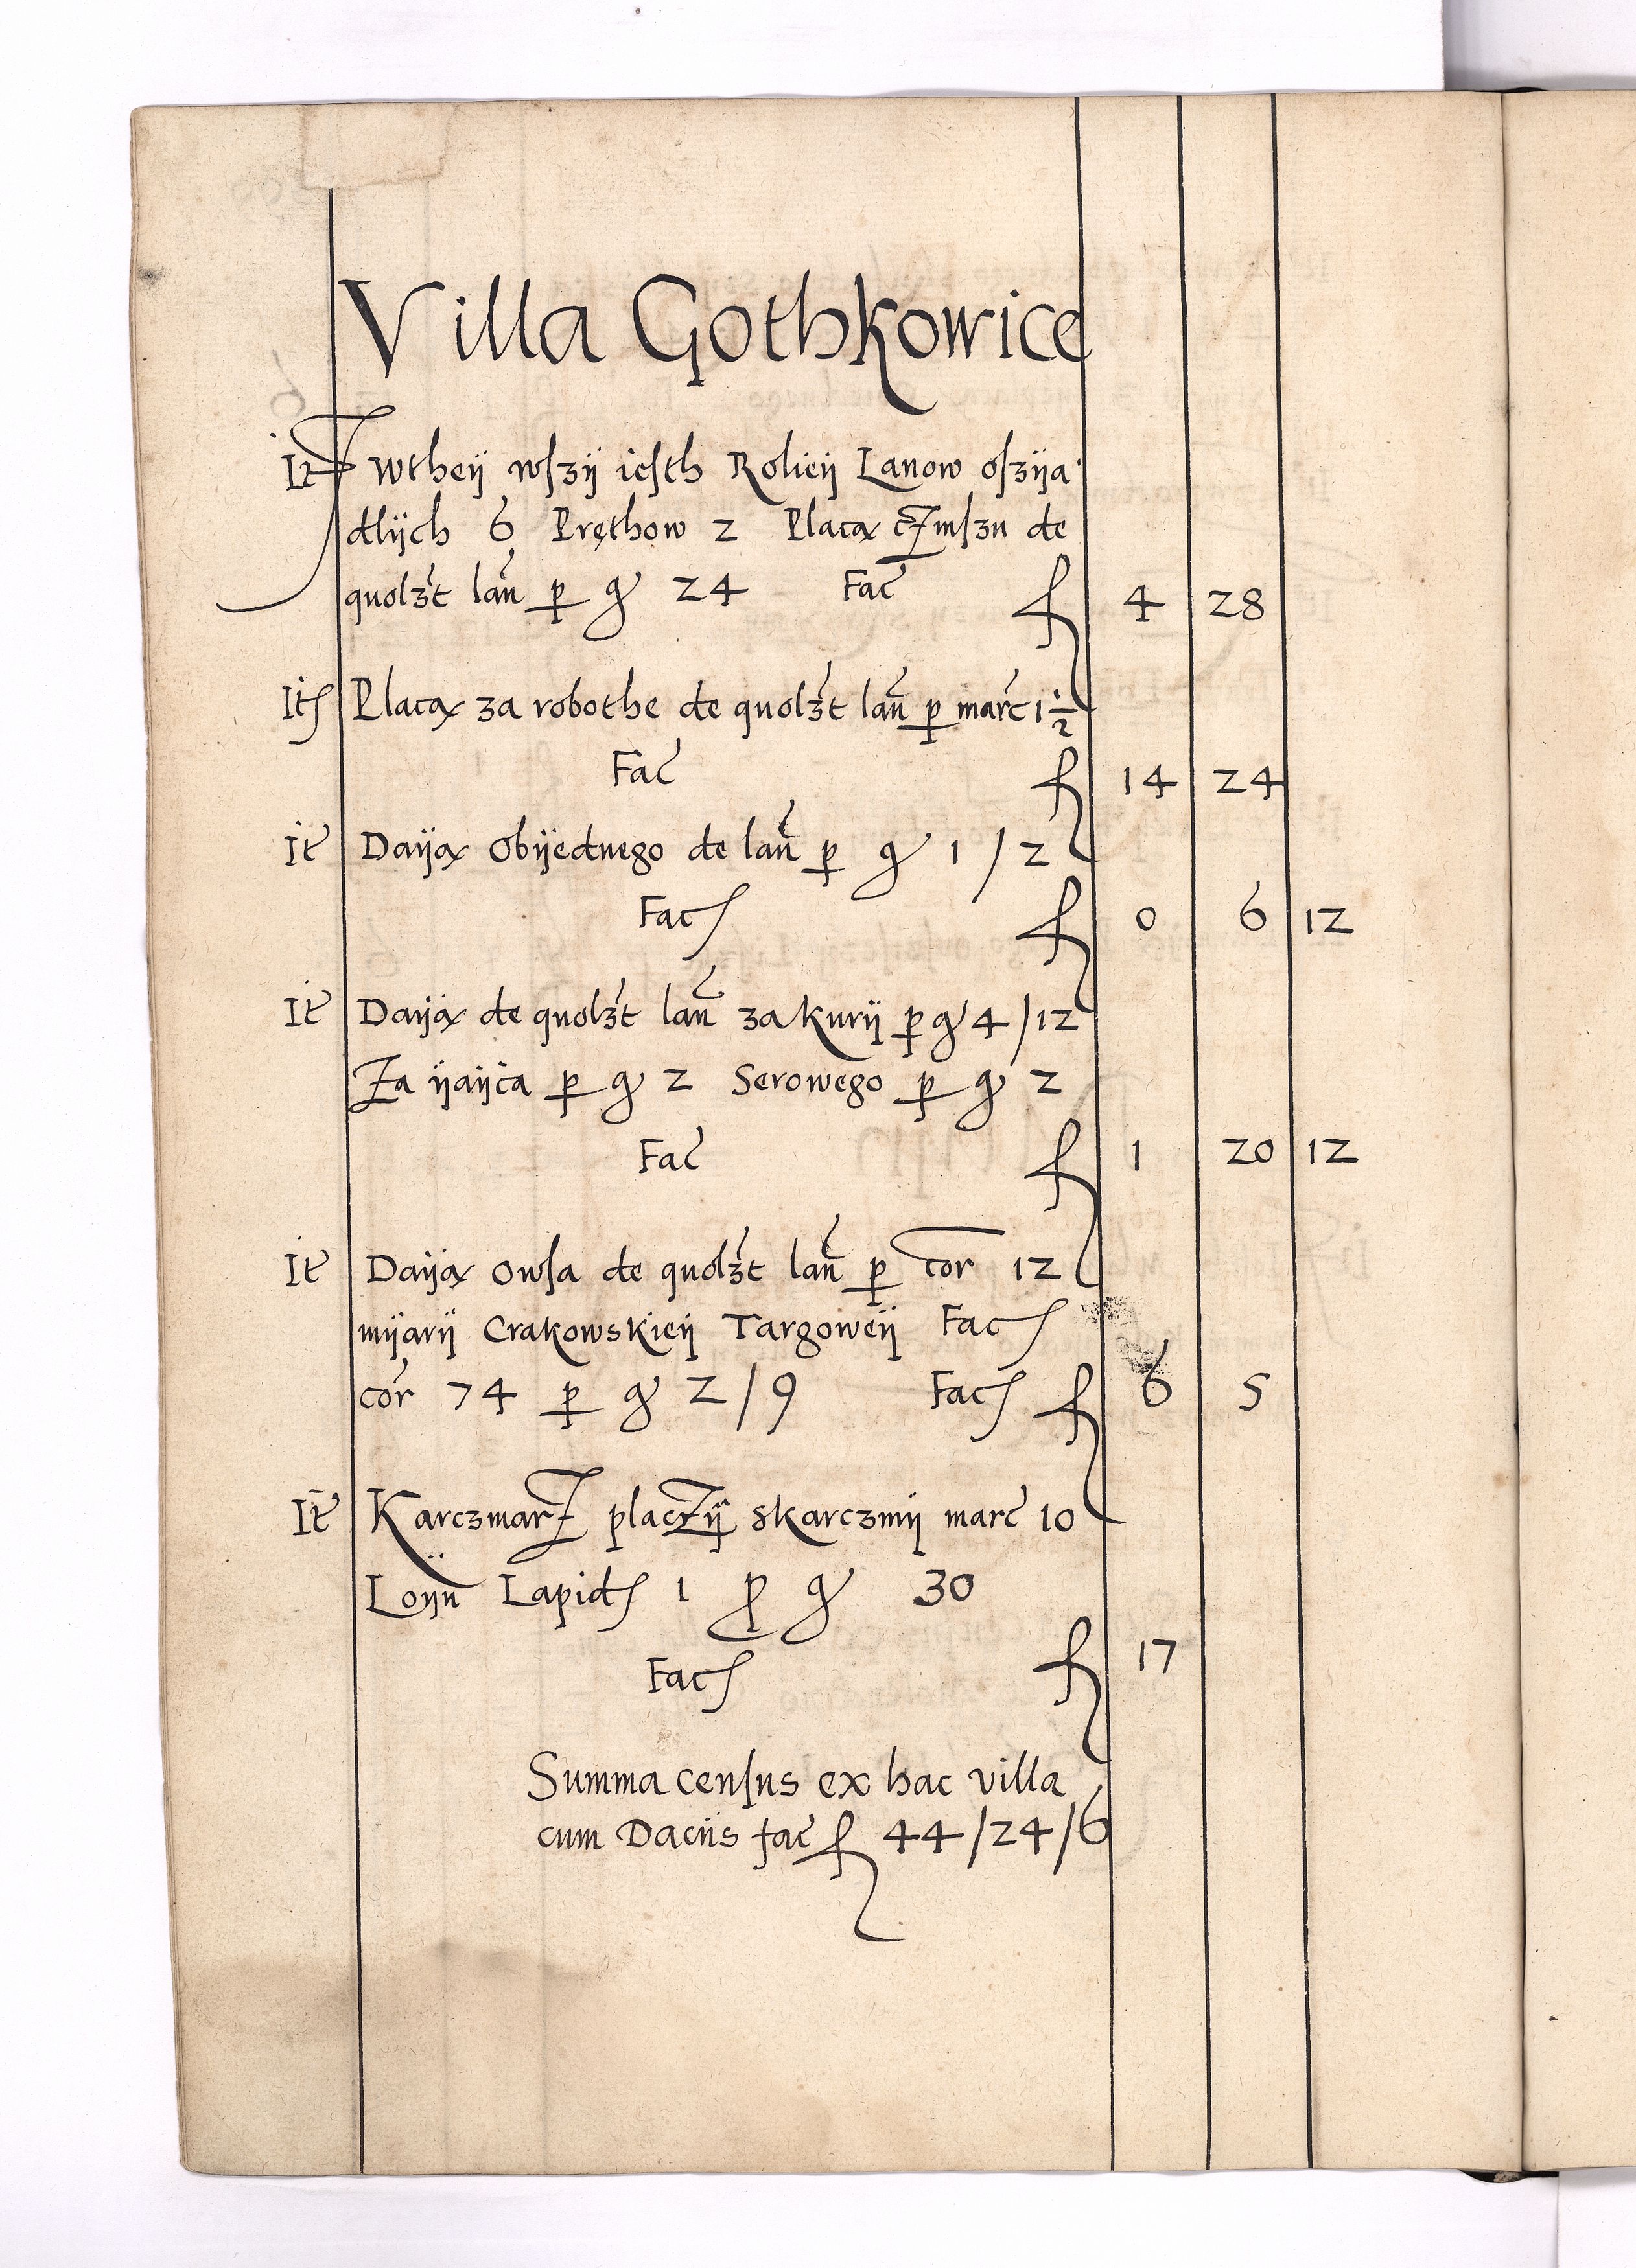 Villa Gothkowice
It Wtheÿ wſzÿ ieſth Rolieÿ Lanow oſzÿa
dlÿch 6 Pręthow 2 Placą cżÿnſzu de
quolzt lan̄ p gͬ 24 Fac̄ fl 4 28
Itꝭ Placą za robothe de quolzt lan̄ p marc̄ 1 ½
Fac̄ fl 14 24
It Daÿą Obÿednego de lan̄ p gͬ 1 / 2
Facꝭ fl 0 6 12
It Daÿą de quolzt lan̄ za kurÿ p gͬ 4 / 12
Za ÿaÿca p gͬ 2 Serowego p gͬ 2
Fac̄ fl 1 20 12
It Daÿą Owſa de quolzt lan̄ p cor̄ 12
mÿarÿ Crakowskieÿ Targoweÿ Facꝭ
cor̄ 74 p gͬ 2 / 9 Facꝭ fl 6 5
It Karczmarz placzÿ skarczmÿ marc̄ 10
Loÿu Lapidꝭ 1 p gͬ 30
Facꝭ fl 17
Summa cenſus ex hac villa
cum Daciis fac̄ fl 44 / 24 / 6